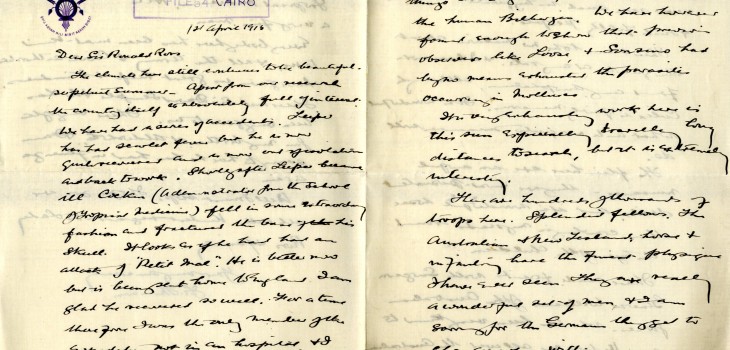 CAIRO
1st April 1915
Dear Sir Ronald Ross
The climate here still continues to be beautiful.
superb Summer. Apart from our research
the country itself is absolutely full of interest.
We have had a series of accidents. Leiper
has had scarlet fever but he is now
quite recovered and is now out of isolation
and back to work. Shortly after Leiper became
ill Cockin (a demonstrator from the School
of Tropical Medicine) fell in some extraordinary
fashion and fractured the base of his
skull. It looks as if he had had an
attack of "Petit Mal". He is better now
but is being sent home to England. I am
glad he recovered so well. For a time
therefore I was the only member of the
not in hospital & I
things
the human Bilharzia. We have however
found enough to show that previous
observers like Looss, & Sonsino had
by no means exhausted the parasites
occurring in Molluscs
It is very exhausting work here in
this sun especially travelling long
distances to search, but it is extremely
interesting.
There are hundreds of thousands of
troops here. Splendid fellows. The
Australian & New Zealand, horse &
infantry have the finest physique
I have ever seen. They are really
a wonderful set of men & I am
sorry for the Germans they get to